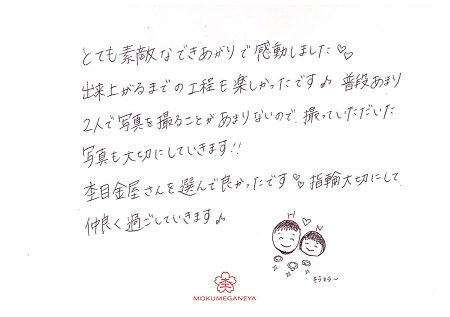 とても素敵なできあがりで感動しました♡♡
出来上がるまでの工程も楽しかったです♪ 普段あまり
2人で写真を撮ることがあまりないので、撮っていただいた
写真も大切にしていきます!!
杢目金屋さんを選んで良かったです♡ 指輪大切にして
仲良く過ごしていきます♪
H ♡ N
キラキラ〜
MOKUMEGANEYA